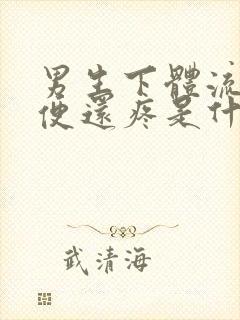 男生下體流
便還疼是什
武清海